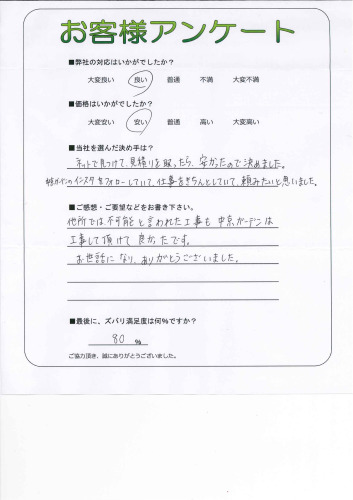 お客様アンケート
■弊社の対応はいかがでしたか？
大変良い 良い 普通 不満 大変不満
■価格はいかがでしたか？
大変安い 安い 普通 高い 大変高い
■当社を選んだ決め手は？
ネットで見つけて、見積りを取ったら、安かったので決めました。
インスタをフォローしていて、仕事をきちんとしていて、頼みたいと思いました。
■ご感想・ご要望などをお書き下さい。
他所では不可能と言われた工事も 中京ガーデンは
工事して頂けて 良かったです。
お世話になり、ありがとうございました。
■最後に、ズバリ満足度は何％ですか？
80 %
ご協力頂き、誠にありがとうございました。